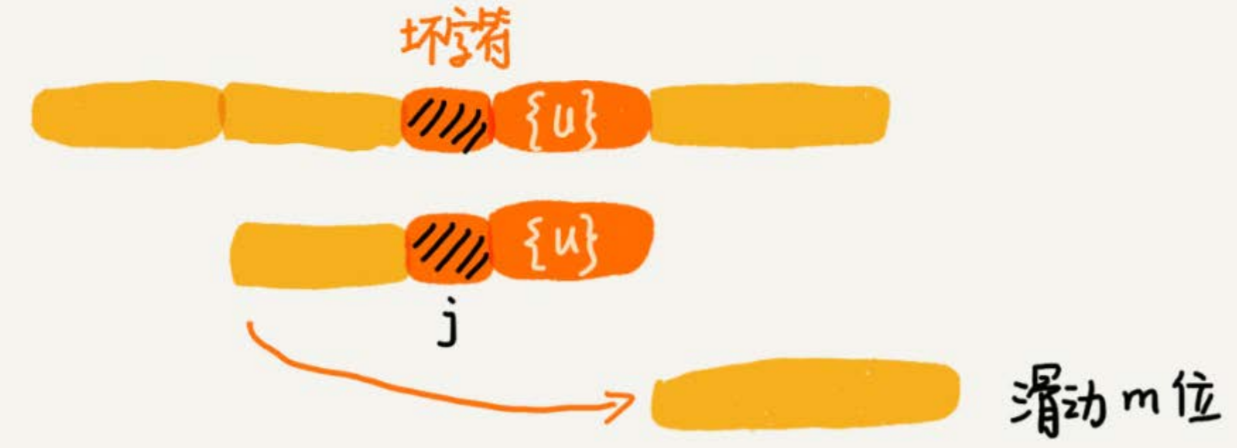 坏字符
{u}
{u}
j
滑动m位